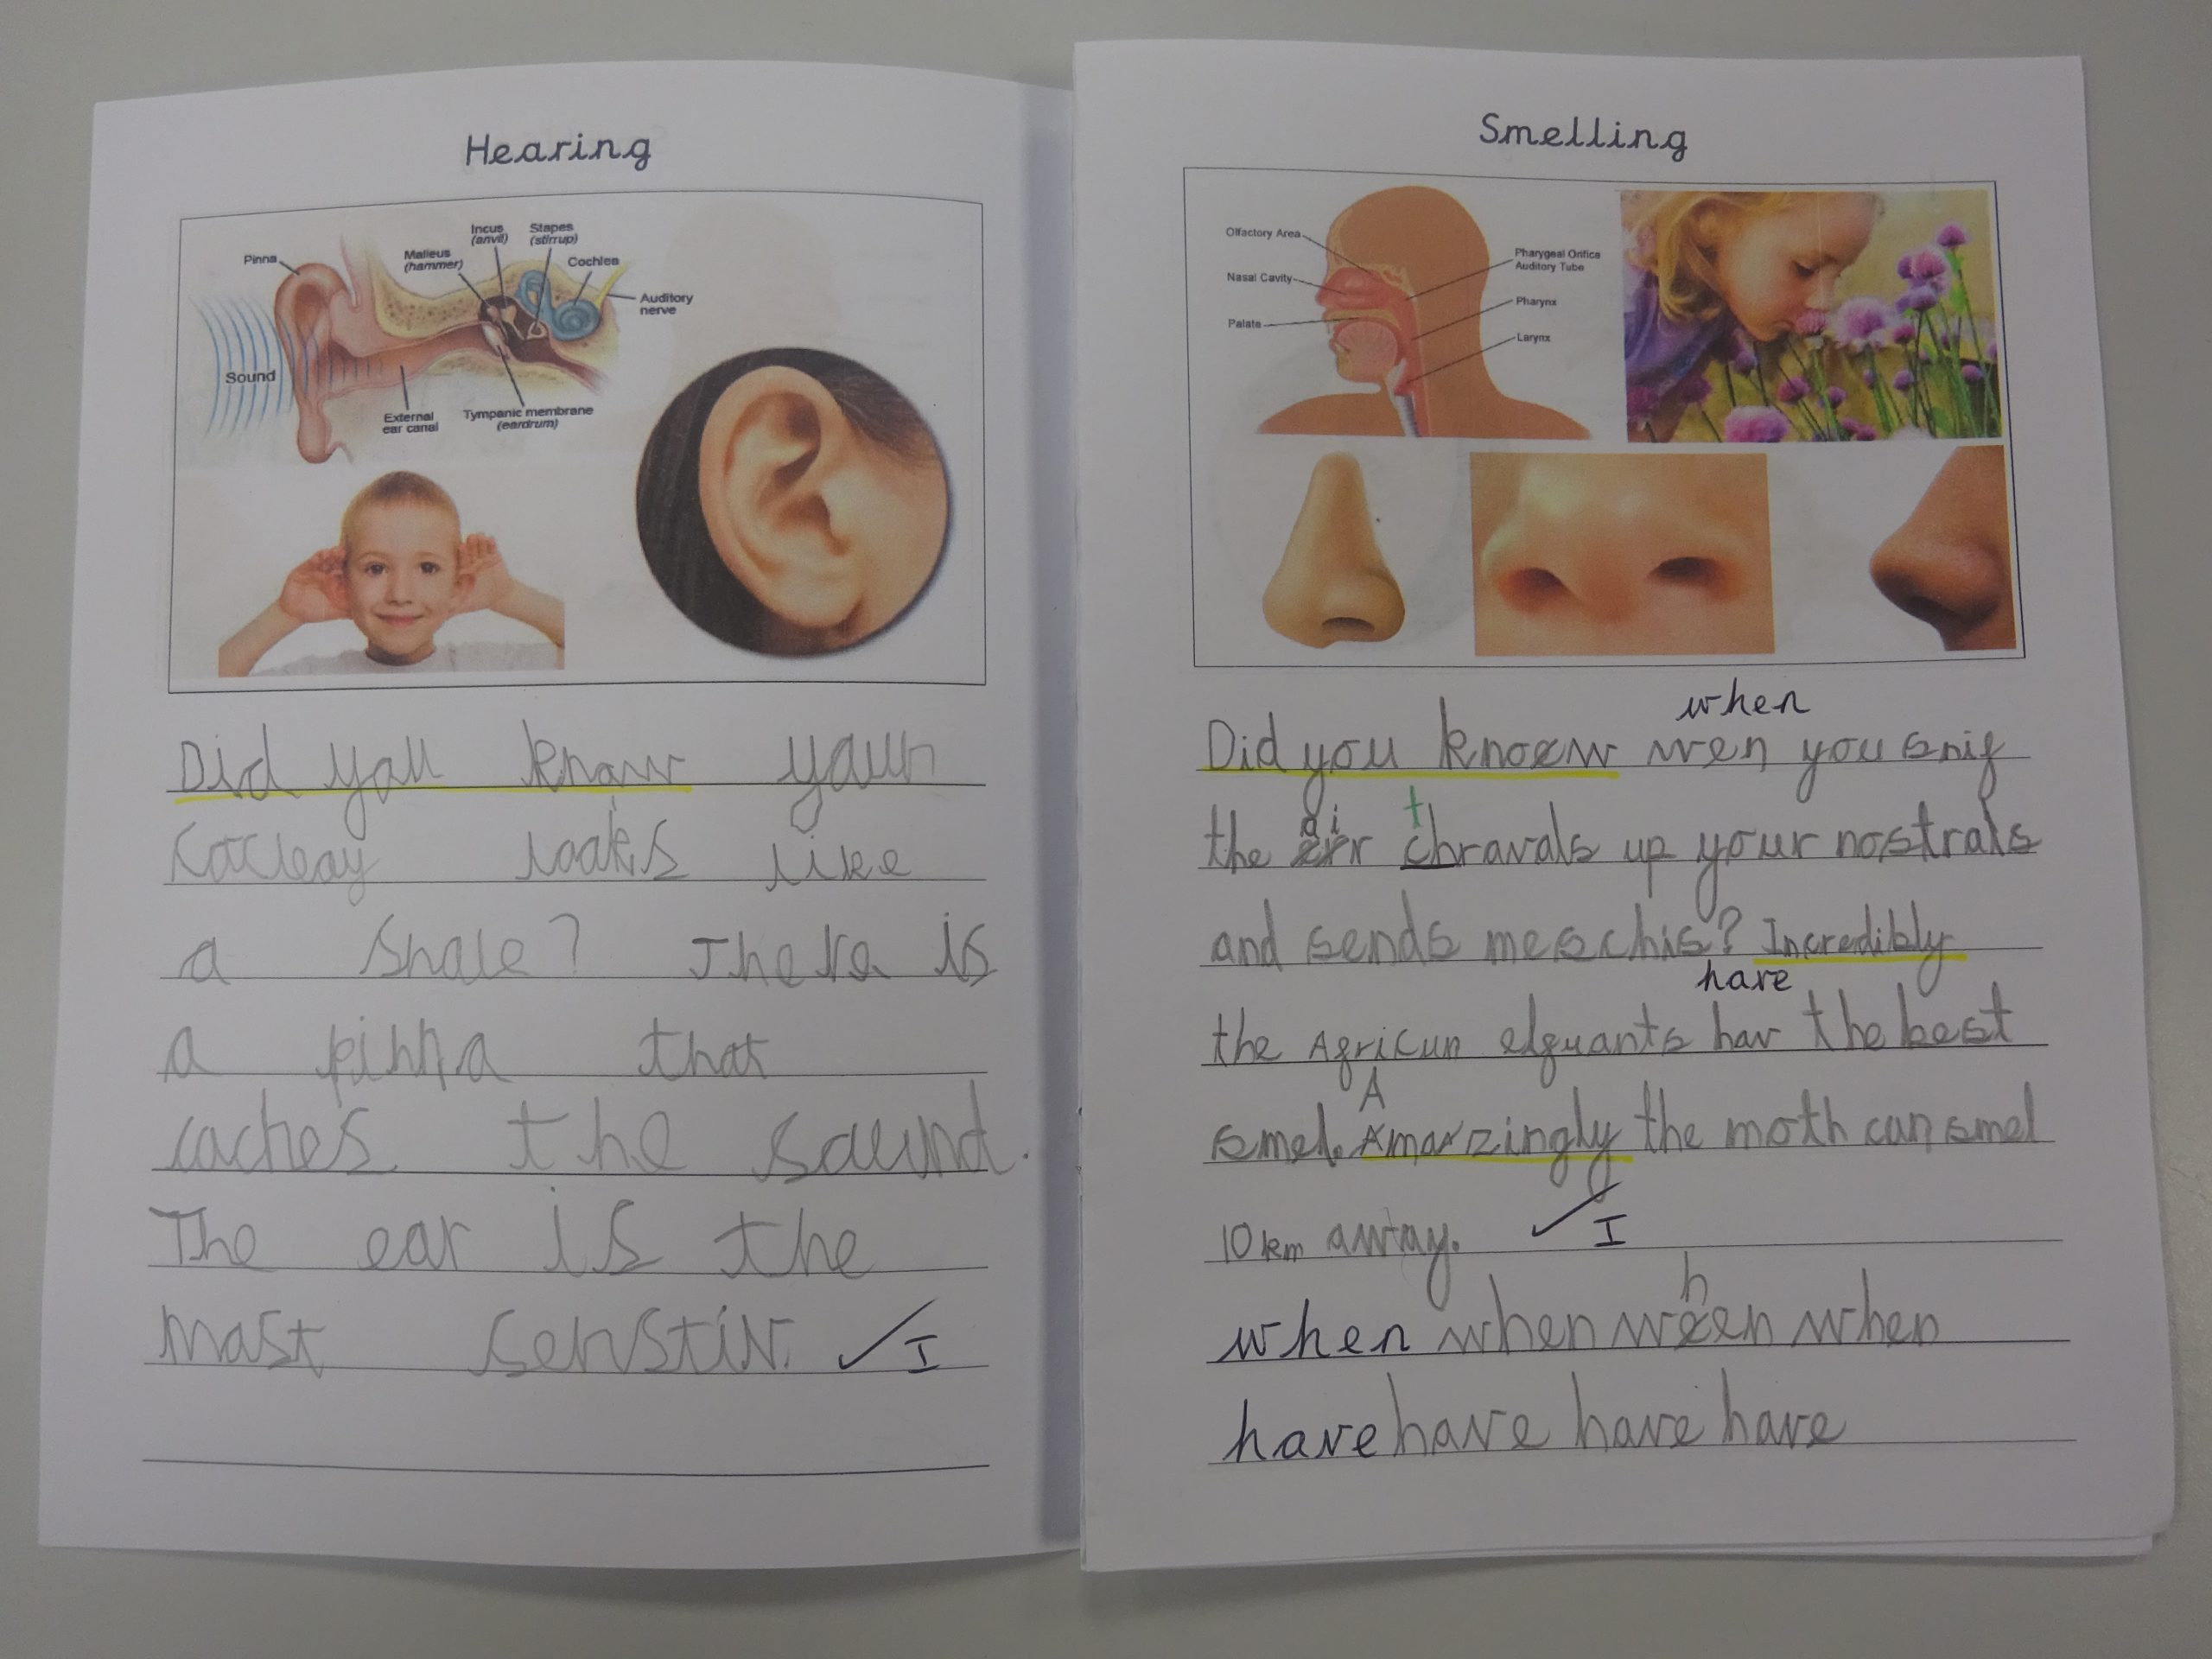 Hearing
Pinna
Malleus
(hammer)
Incus
(anvil)
Stapes
(stirrup)
Cochlea
Auditory
nerve
Sound
External
ear canal
Tympanic membrane
(eardrum)
Did you know your
cocleay looks like
a snale? There is
a pinna that
caches the saund.
The ear is the
mast senstiv.
✓I
Smelling
Olfactory Area
Nasal Cavity
Palate
Pharygeal Orifice
Auditory Tube
Pharynx
Larynx
when
Did you know wen you snif
ai t
the r chravals up your nostrals
and sends meschis? Incredibly
have
the Africun elfuants hav the best
A
smel. Amarzingly the moth can smel
10 km away. ✓I
h
when when ween when
have have have have